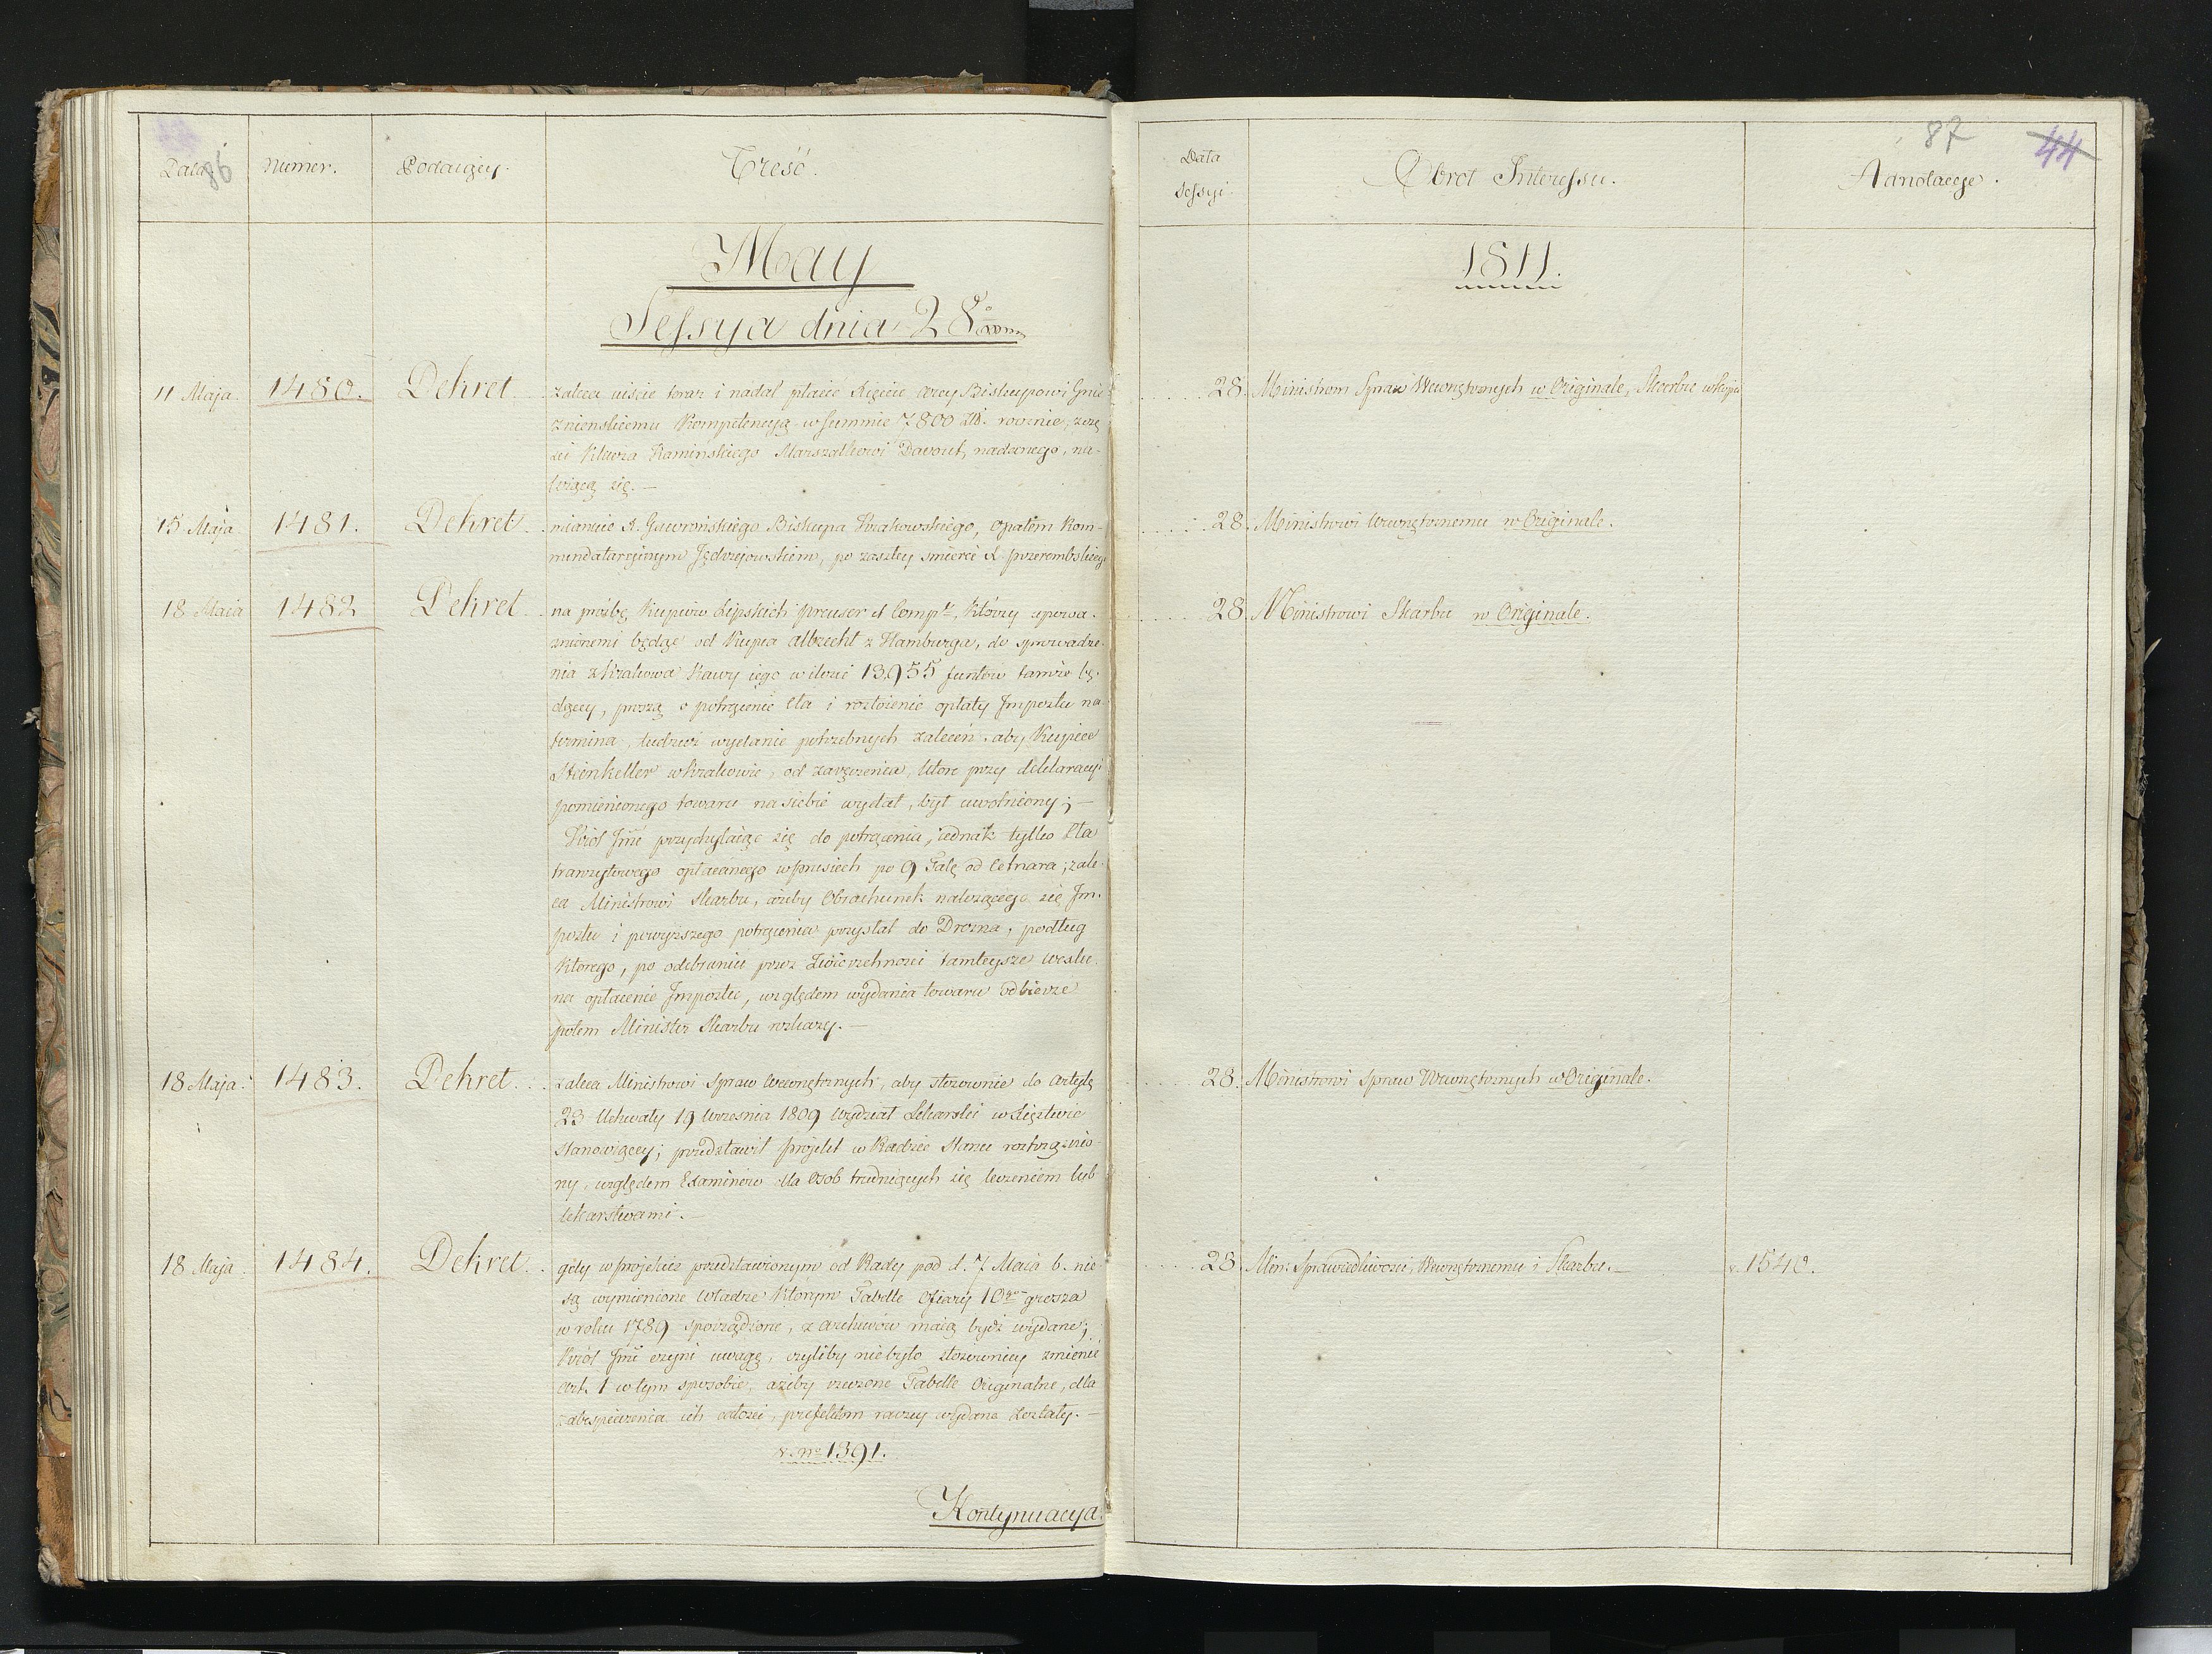 86 Data Numer. Podaiący. Treść.
May
Sessya dnia 28°
11 Maja. 1480. Dekret zaleca uiście teraz i nadal płacić Xięciu Arcy Biskupowi Gnie-
znienskiemu Kompetencyą w summie 7800 rocznie, z
Klucza Kaminskiego Marszałkowi Davout, nadanego, na-
leżącą się. —
15 Maja. 1481. Dekret mianuie X. Gawrońskiego Biskupa Krakowskiego, Opatem Kom-
mendataryinym Jędrzejowskiem, po zaszłey śmierci X. Przerembskiego
18 Maia 1482 Dekret na prośbę Kupców Lipskich Preuser et Comp, Którzy upowa-
żnionemi będąc od Kupca Albrecht z Hamburga, do sprowadze-
nia z Krakowa Kawy iego w ilości 13,955 funtów tamże bę-
dącey, proszą o potrącenie Cła i rozłożenie opłaty Impostu na
termina, tudzież wydanie potrzebnych zaleceń, aby Kupiec
Steinkeller w Krakowie, od zaręczenia, które przy deklaracyi
pomienionego towaru na siebie wydał, był uwolniony; —
Król Jmć przychylaiąc się do potrącenia, iednak tylko Cła
tranzytowego opłacanego w Prusiech po 9 Tal. od Cetnara; zale-
ca Ministrowi Skarbu, ażeby Obrachunek należącego się Im-
postu i powyższego potrącenia przysłał do Drezna, podług
Którego, po odebraniu przez Zwierzchność tamteyszą
na opłacenie Impostu, względem wydania towaru odbierze
potem Minister Skarbu rozkazy. —
18 Maja. 1483. Dekret. zaleca Ministrowi Spraw Wewnętrznych, aby stosownie do Artykułu
23 Uchwały 19 Września 1809 Wydział Lekarski w Xięstwie
stanowiącey; przedstawił projekt w Radzie Stanu roztrząśnio-
ny, względem Examinów dla Osob trudniących się leczeniem lub
lekarstwami. —
18 Maja. 1484. Dekret. gdy w projekcie przedstawionym od Rady pod d. 7 Maia b. nie
są wymienione Władze Którym Tabelle Ofiary 10go grosza
w roku 1789 sporządzone, z Archiwów maią bydź wydane;
Król Jmć czyni uwagę, czyliby nie było stosowniey zmienić
Art. 1 w tym sposobie, ażeby rzeczone Tabelle Originalne, dla
zabespieczenia ich całości, prefektom raczey wydane zostały. —
v. No 1391.
Kontynuacya.
87 44
Data Sessyi Obrot Interessu. Adnotacye.
1811.
28. Ministrom Spraw Wewnętrznych w Originale, Skarbu w kopii
28. Ministrowi Wewnętrznemu w Originale.
28. Ministrowi Skarbu w Originale.
28. Ministrowi Spraw Wewnętrznych w Originale.
28. Min: Sprawiedliwości, Wewnętrznemu i Skarbu. — v. 1540.